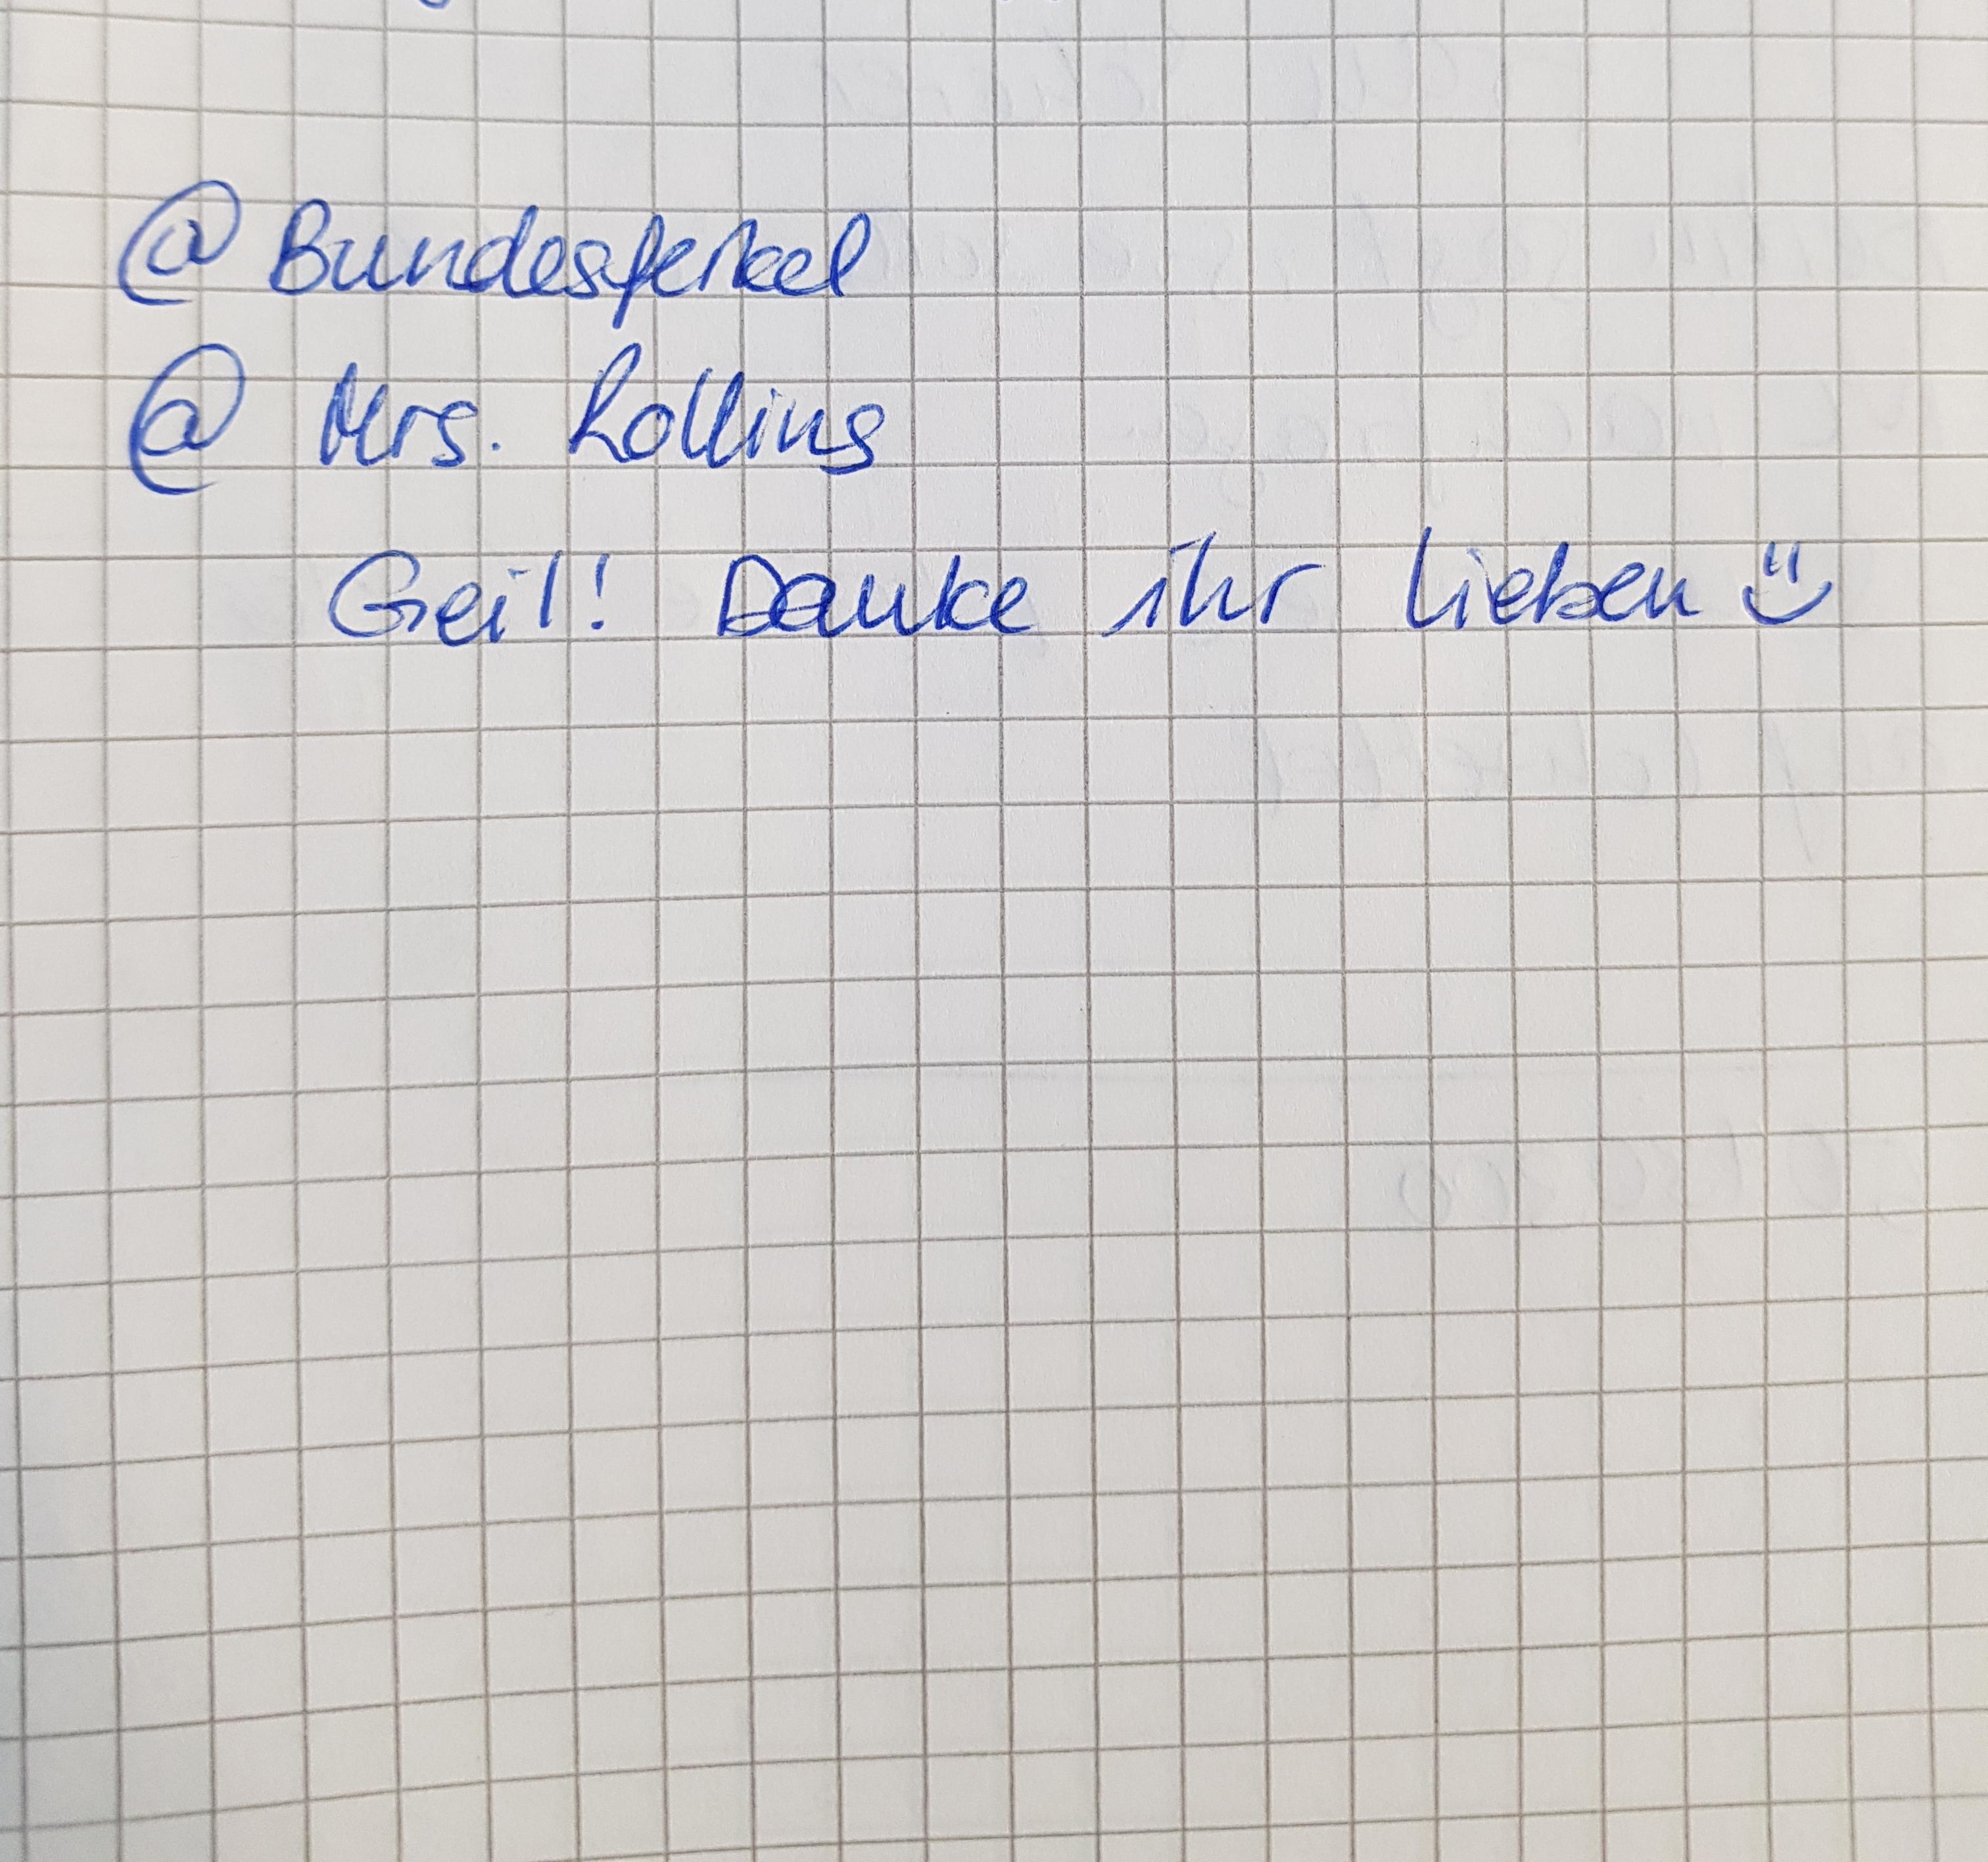 @Bundesferkel
@ Mrs. Rollins
Geil! Danke ihr lieben ü